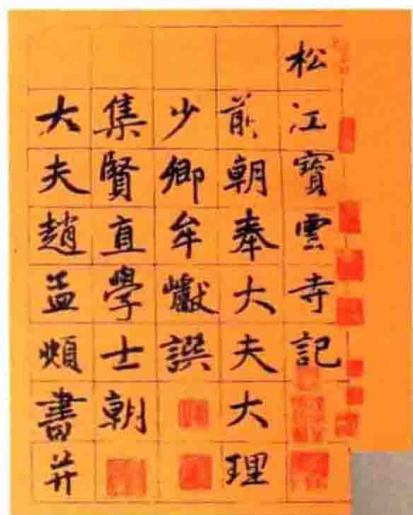 松江寶雲寺記
前朝奉大夫大理
少卿牟巘譔
集賢直學士朝
大夫趙孟頫書并